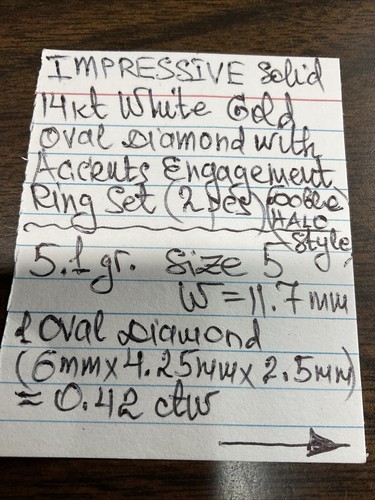 IMPRESSIVE Solid
14kt White Gold
Oval Diamond with
Accents Engagement
Ring Set (2 pcs) (Double
HALO
Style
5.1 gr. Size 5
W = 11.7 mm
1 Oval Diamond
(6mm x 4.25mm x 2.5mm)
= 0.42 ctw